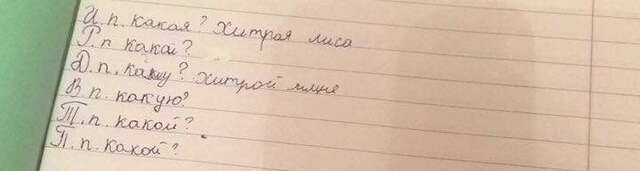 И.п. какая? Хитрая лиса
Р.п какой?
Д.п. какому? хитрой
В п. какую?
Т.п. какой?
П.п. какой?